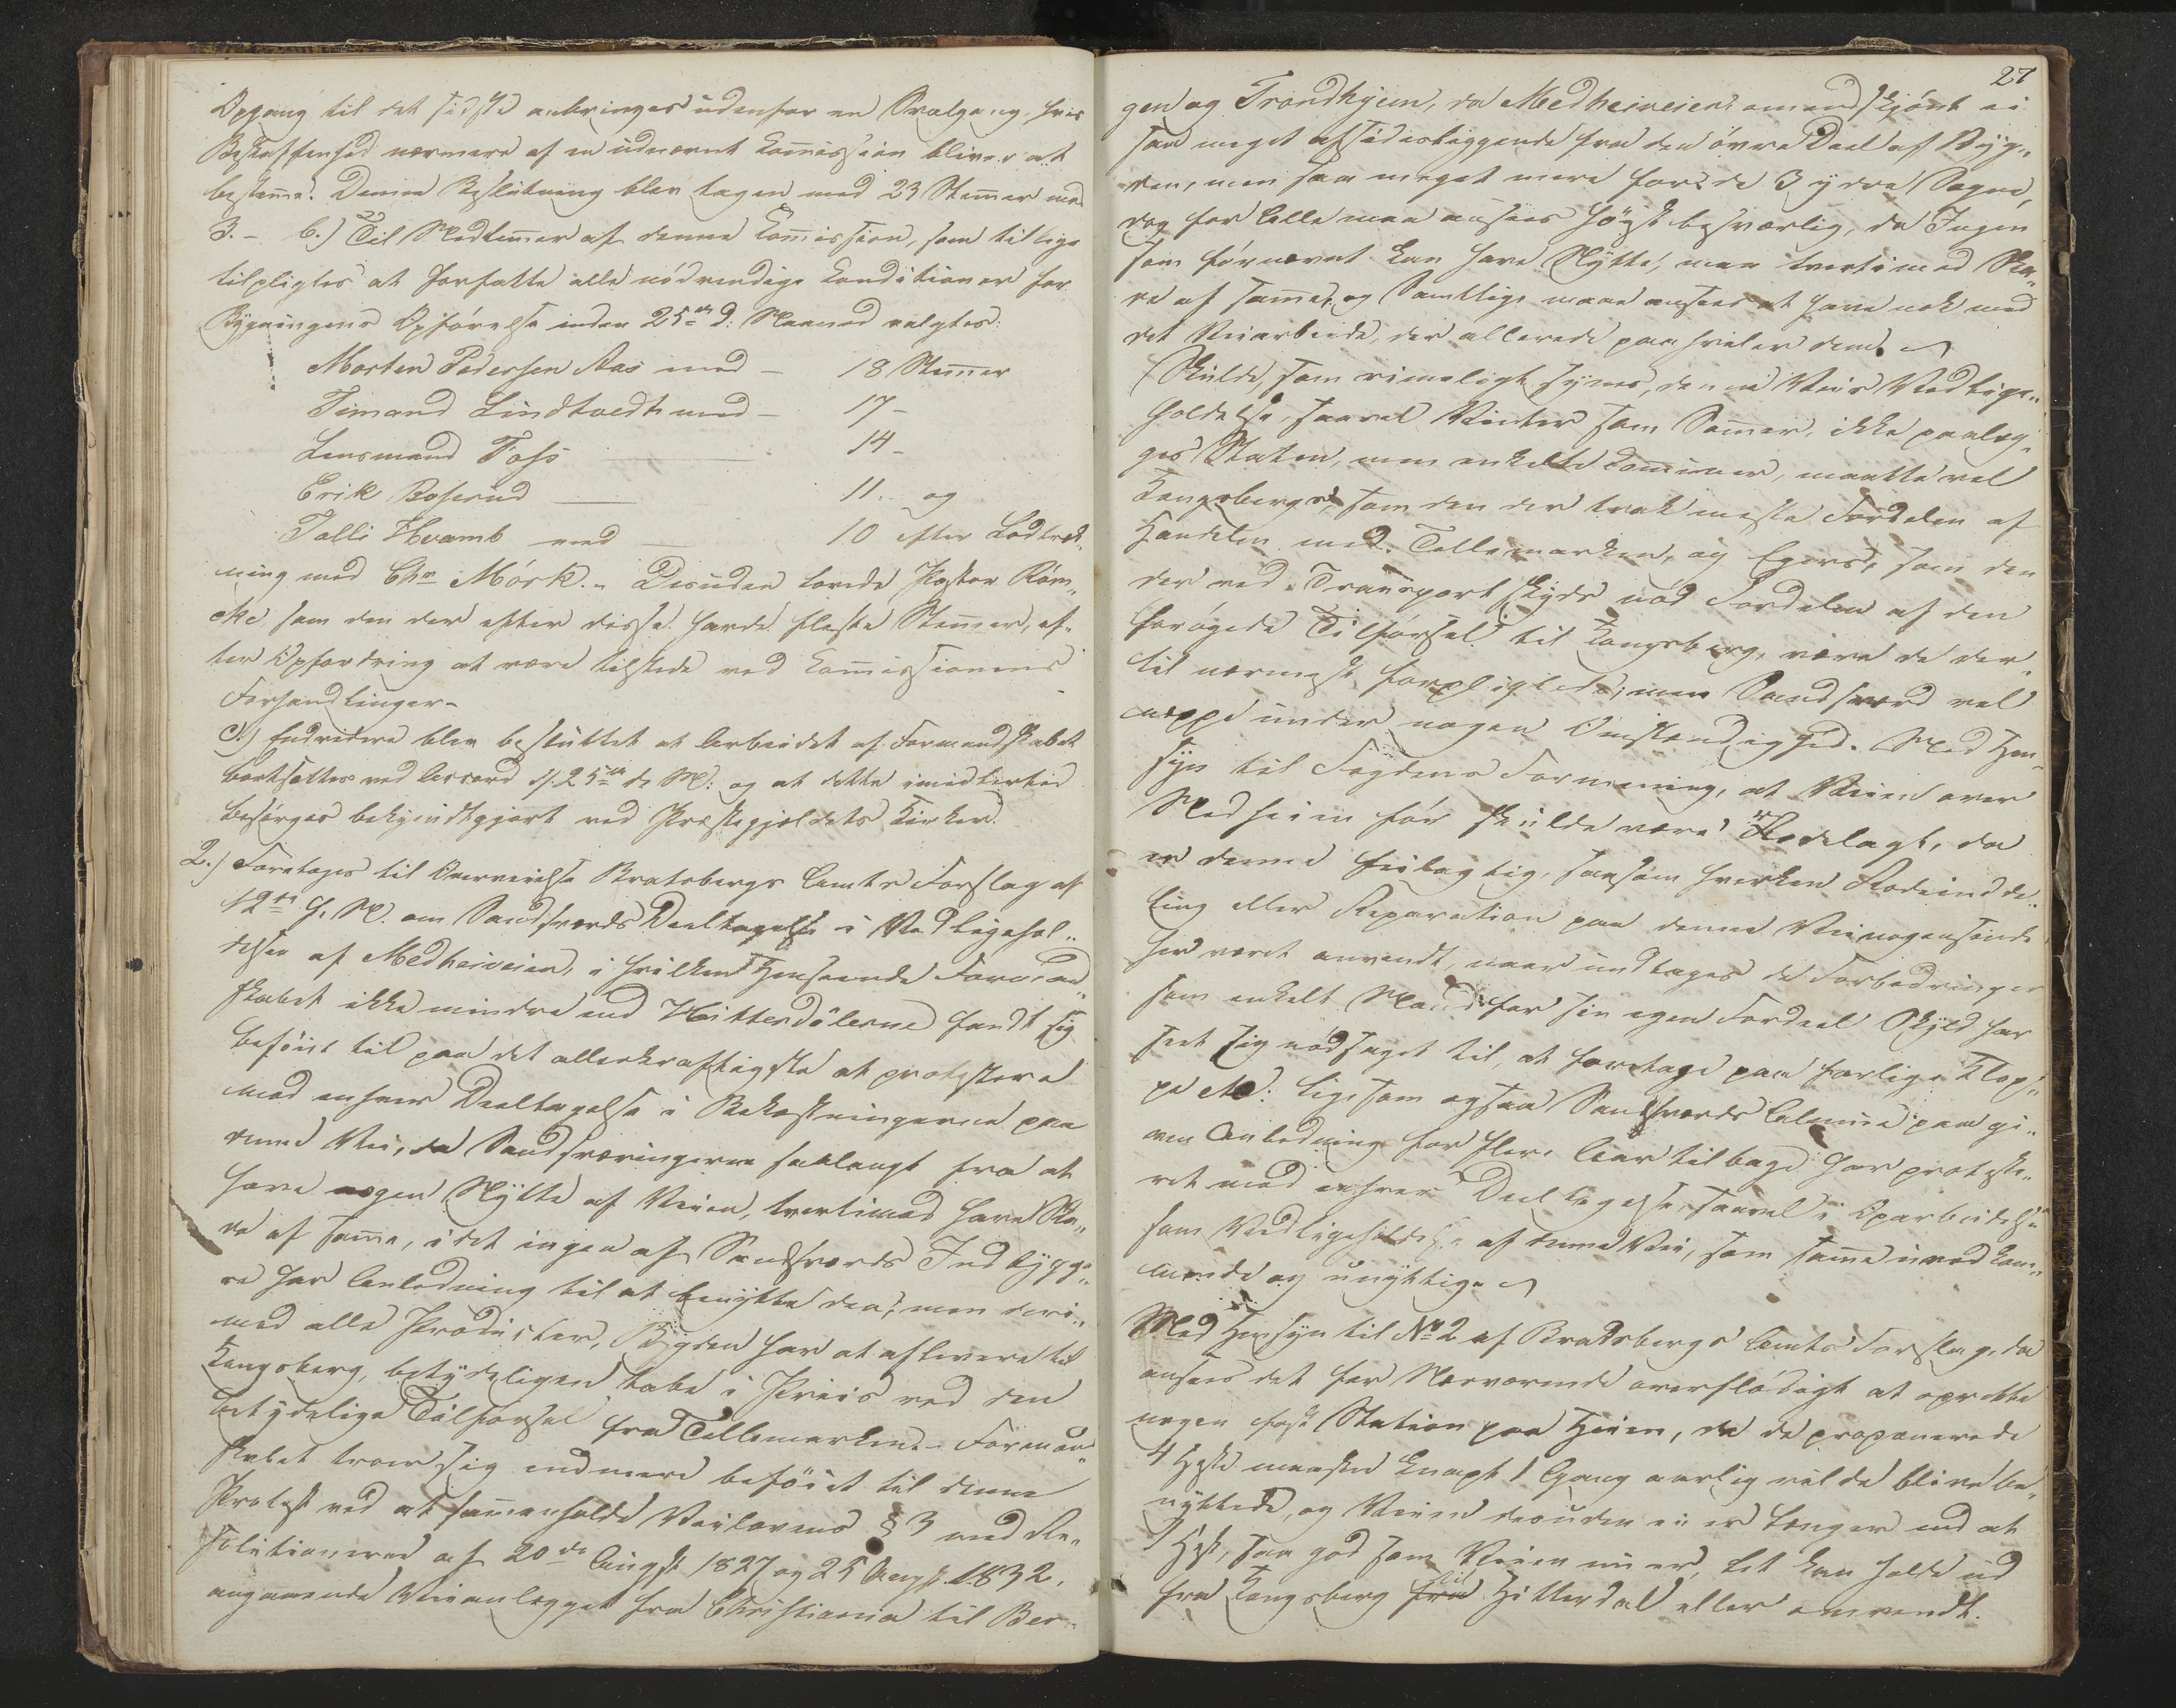 Opgang til det sidste anbringes udenfor en Svalgang, hvis
Beskaffenhed nærmere af en udnævnt Kommission bliver at
bestemme. Denne Beslutning blev tagen med 23 Stemmer mod
3. – b.) Til Medlemmer af denne Kommission, som tillige
tilpligtes at forfatte alle nödvendige Konditioner for
Bygningens Opförelse inden 25de d: Maaned valgtes:
Morten Pedersen Aas med – 18 Stemmer
Timand Lindtvedt med – 17 –
Lensmand Foss 14 –
Erik Boserud 11. og
Talle Hvamb med 10 efter Lodtræk„
ning med Chr Mörk. – Desuden lovede Pastor Röm„
cke som den der efter disse havde fleste Stemmer, ef„
ter Opfordring at være tilstede ved Kommissionens
Forhandlinger –
c.) Endvidere blev besluttet at Arbeidet af Formandskabet
bortsættes ved Accord d. 25de d: M: og at dette imidlertid
besörges bekjendtgjort ved Præstegjeldets Kirker.
2.) Foretoges til Overveielse Bratsbergs Amts Forslag af
12te f. M. om Sandsværds Deeltagelse i Vedligehol„
delsen af Medheiveien, i hvilken Henseende Formand„
skabet ikke mindre end Hitterdölerne fandt sig
beföiet til paa det allerkraftigste at protestere
mod enhver Deeltagelse i Bekostningerne paa
denne Vei, da Sandsværingerne saalangt fra at
have nogen Nytte af Veien, tvertimod have Ska„
de af samme, idet ingen af Sandsværds Indbygge„
re har Anledning til at benytte den, men deri„
mod alle Producter, Bygden har at aflevere til
Kongsberg, betydeligen tabe i Priis ved den
betydelige Tilförsel fra Tellemarken. – Formand„
skabet troer sig endmere beföiet til denne
Protest ved at sammenholde Veilovens § 3 med Re„
solutionerne af 20de Augst 1827 og 25 Augst 1832,
angaaende Veianlægget fra Christiania til Ber„
27
gen og Trondhjem, da Medheiveien omendskjönt ei
saa meget afsidesliggende fra den övre Deel af Byg„
den, men saa meget mere for de 3 ydre Sogne,
dog for Alle maa ansees höist besværlig, da Ingen
som förnævnt kan have Nytte, men tvertimod Ska„
de af samme, og Samtlige maae ansees at have nok med
det Veiarbeide, der allerede paahviler dem.
Skulde, som rimeligt synes, denne Veis Vedlige„
holdelse, saavel Vinter som Sommer, ikke paalæg„
ges Staten, men enkelte Communer, maatte vel
Kongsbergs, som den der trak meste Fordelen af
Handelen med Tellemarken, og Egers, som den
der ved Transportskyds nöd Fordelen af den
forögede Tilförsel til Kongsberg, være de der„
til nærmest forpligtede, men Sandsværd vel
neppe under nogen Omstændighed. Med Hen„
syn til Fogdens Formening, at Veien over
Medheien för skulde være Rodelagt, da
er denne feilagtig, saasom hverken Rodeindde„
ling eller Reparation paa denne Vei nogensinde
her været anvendt, naar undtages de Forbedringer
som enkelt Mand for sin egen Fordeel Skyld har
seet sig nödsaget til, at foretage paa farlige Klop„
pe etc: ligesom ogsaa Sandsværds Almue paa gi„
ven Anledning for flere Aar tilbage har proteste„
ret mod enhver Deeltagelse, saavel i Oparbeidelse
som Vedligeholdelse af denne Vei, som samme uvedkom„
mende og unyttig.
Med Hensyn til No 2 af Bratsbergs Amts Forslag, da
ansees det for Nærværende overflödigt at oprette
nogen fast Station paa Heien, da de proponerede
4 Heste maaskee knapt 1 Gang aarlig vilde blive be„
nyttede, og Veien desuden ei er længer end at
1 Hest, saa god som Veien nu er, let kan holde ud
fra Kongsberg til Hitterdal eller omvendt.